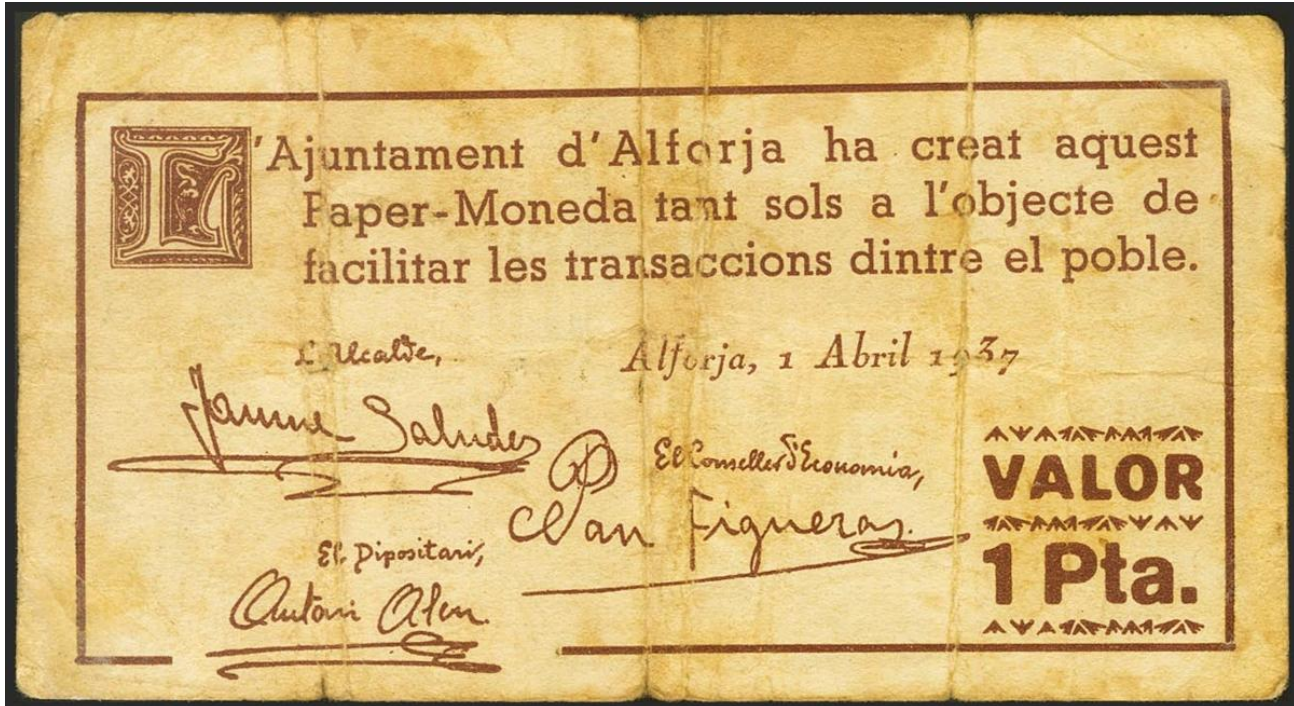 L'Ajuntament d'Alforja ha creat aquest
Paper-Moneda tant sols a l'objecte de
facilitar les transaccions dintre el poble.
L'Alcalde,
Alforja, 1 Abril 1937
Jaume Saludes
El Conseller d'Economia,
Pau Figueras
VALOR
1 Pta.
El Dipositari,
Antoni